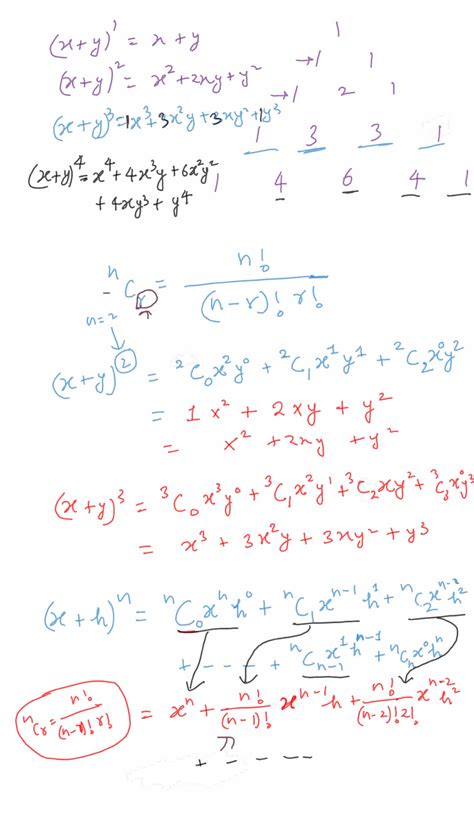 (x+y)¹ = x + y 1
(x+y)² = x² + 2xy + y² → 1 1
(x+y)³ = 1x³ + 3x²y + 3xy² + 1y³ → 1 2 1
1 3 3 1
(x+y)⁴ = x⁴ + 4x³y + 6x²y² 1 4 6 4 1
+ 4xy³ + y⁴
ⁿCᵣ = n! / (n-r)! r!
n=2
(x+y)² = ²C₀x²y⁰ + ²C₁x¹y¹ + ²C₂x⁰y²
= 1x² + 2xy + y²
= x² + 2xy + y²
(x+y)³ = ³C₀x³y⁰ + ³C₁x²y¹ + ³C₂xy² + ³C₃x⁰y³
= x³ + 3x²y + 3xy² + y³
(x+h)ⁿ = ⁿC₀xⁿh⁰ + ⁿC₁xⁿ⁻¹h¹ + ⁿC₂xⁿ⁻²h²
+ - - - + ⁿCₙ₋₁x¹hⁿ⁻¹ + ⁿCₙx⁰hⁿ
ⁿCᵣ = n! / (n-r)! r! = xⁿ + n!/(n-1)! xⁿ⁻¹h + n!/(n-2)!2! xⁿ⁻²h²
+ - - - -